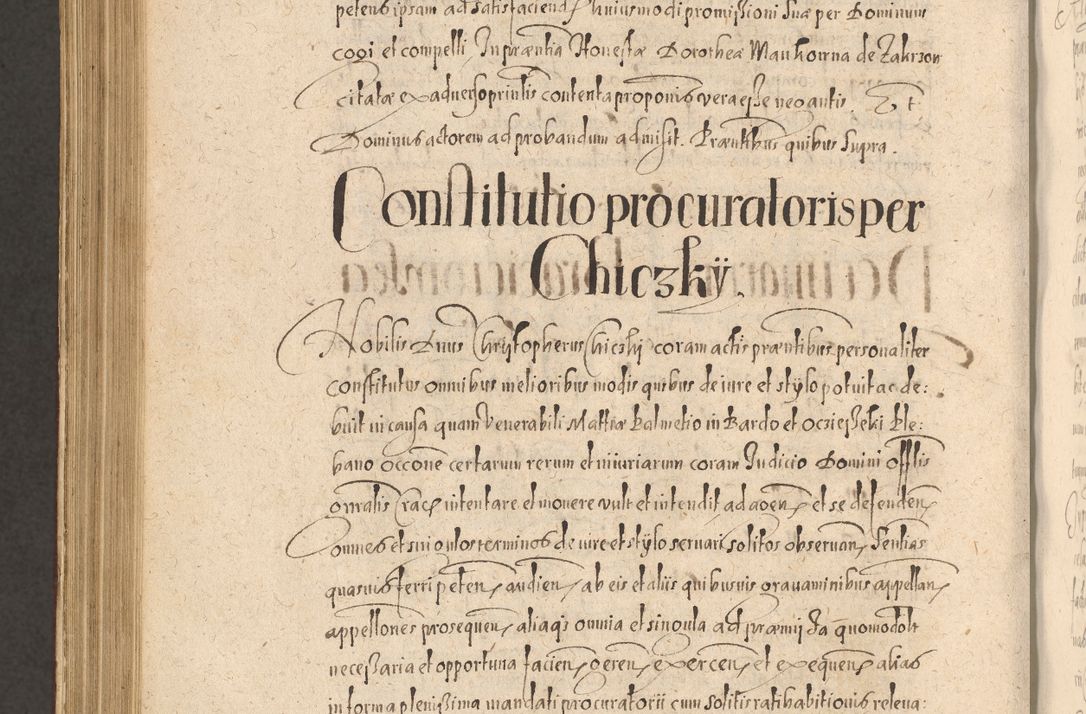 petens ipsam ad satisfaciend huiusmodi promissioni suæ per Dominum
cogi et compelli In præntia Honestæ Dorothea Mankowna de Zakrzow
citatæ ex adverso printis contenta proponis vera esse negantis. Et
Dominus actorem ad probandum admisit. Præntibus quibus supra.
Constitutio procuratoris per
Chiczky.
Nobilis Dnus Chrystopherus Chiczki coram actis præntibus personaliter
constitutus omnibus melioribus modis quibus de iure et stylo potuit ac de:
buit in causa quam Venerabili Mattiæ Palmetio in Bardo et Ocziesseki Ple:
bano occone certarum rerum et iniuriarum coram Iudicio Domini offlis
gnralis Crac intentare et movere vult et intendit ad agen et se defenden
Omnes et singulos terminos de iure et stylo servari solitos observan Sentias
quasvis ferri peten audien ab eis et aliis quibusvis gravaminibus appellan
appellones prosequen aliaqs omnia et singula ad præmissa quomodolt
necessaria et opportuna facien geren exercen et exequen alias
in forma plenissima mandati procuratorii cum solitis ratihabitionis releva: